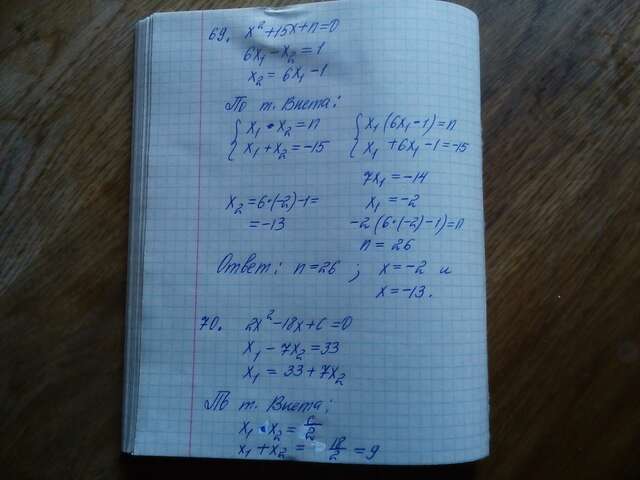 69. x² + 15x + n = 0
6x₁ - x₂ = 1
x₂ = 6x₁ - 1
По т. Виета:
{ x₁ • x₂ = n { x₁ (6x₁ - 1) = n
{ x₁ + x₂ = -15 { x₁ + 6x₁ - 1 = -15
7x₁ = -14
x₂ = 6•(-2) - 1 = x₁ = -2
= -13 -2 (6•(-2) - 1) = n
n = 26
Ответ: n = 26 ; x = -2 и
x = -13.
70. 2x² - 18x + c = 0
x₁ - 7x₂ = 33
x₁ = 33 + 7x₂
По т. Виета:
x₁ • x₂ = c/2
x₁ + x₂ = 18/2 = 9